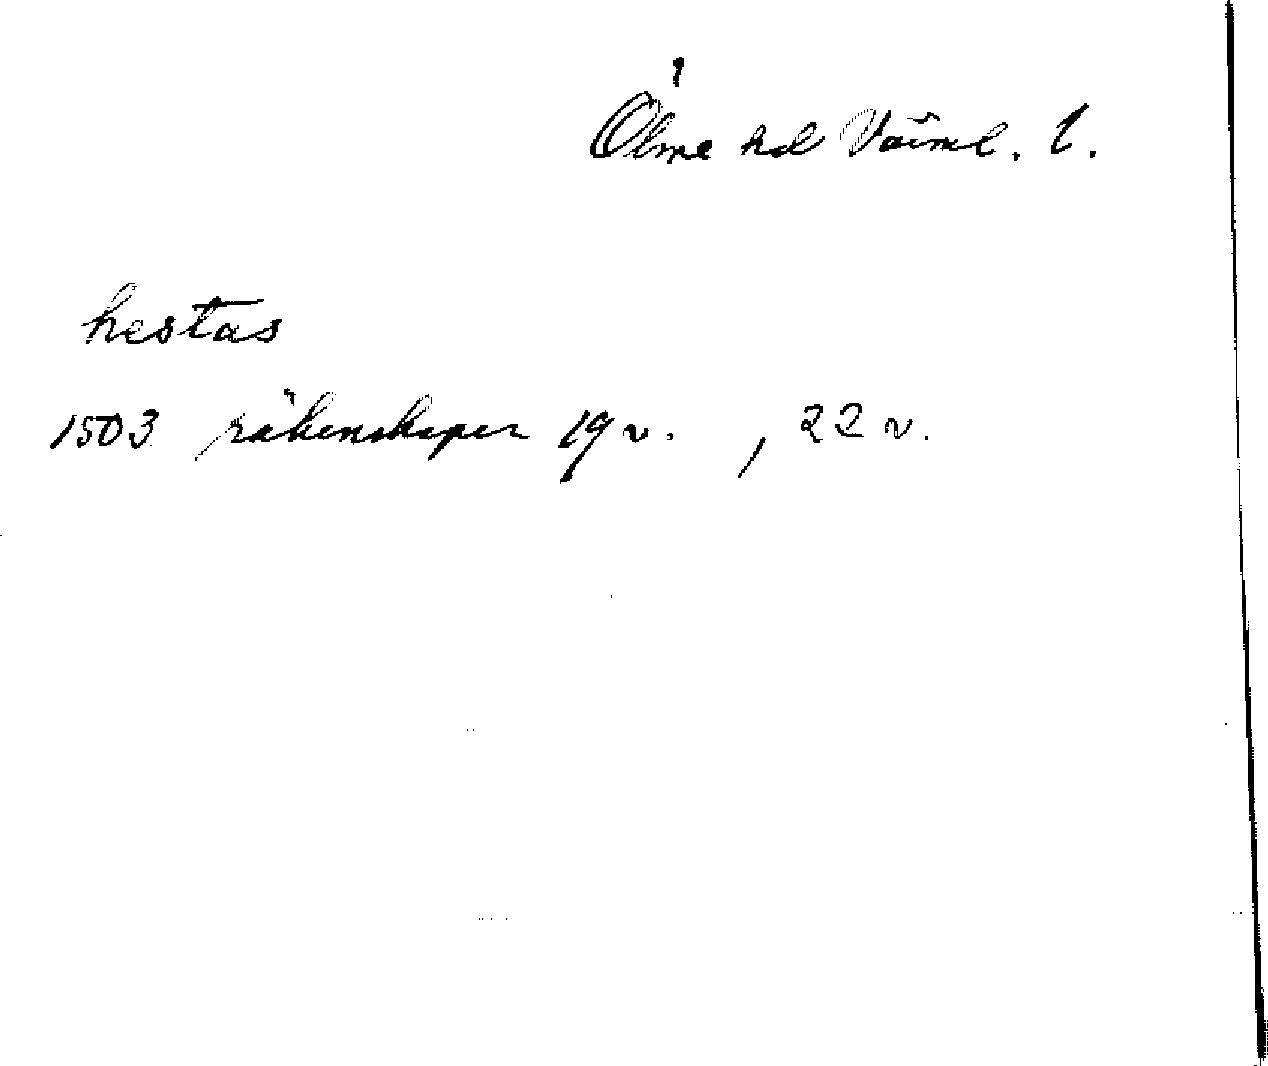 Ölme hd Värml. l.
hestas
1503 räkenskaper 19 v. , 22 v.